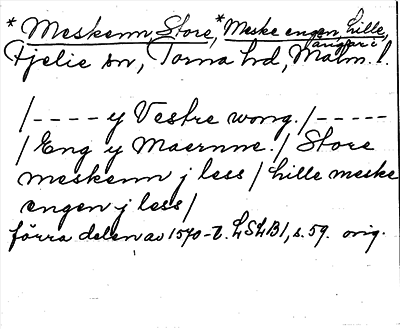 * Meskenn, Store, * Meske engen, lille,
ängar i
Fjelie sn, Torna hd, Malm. l.
/ - - - - y Vestre wong. / - - - - -
/ Eng y Maernne. / Store
meskenn j less / lille meske
engen j less /
förra delen av 1570-t. LSLB1, s. 59. orig.